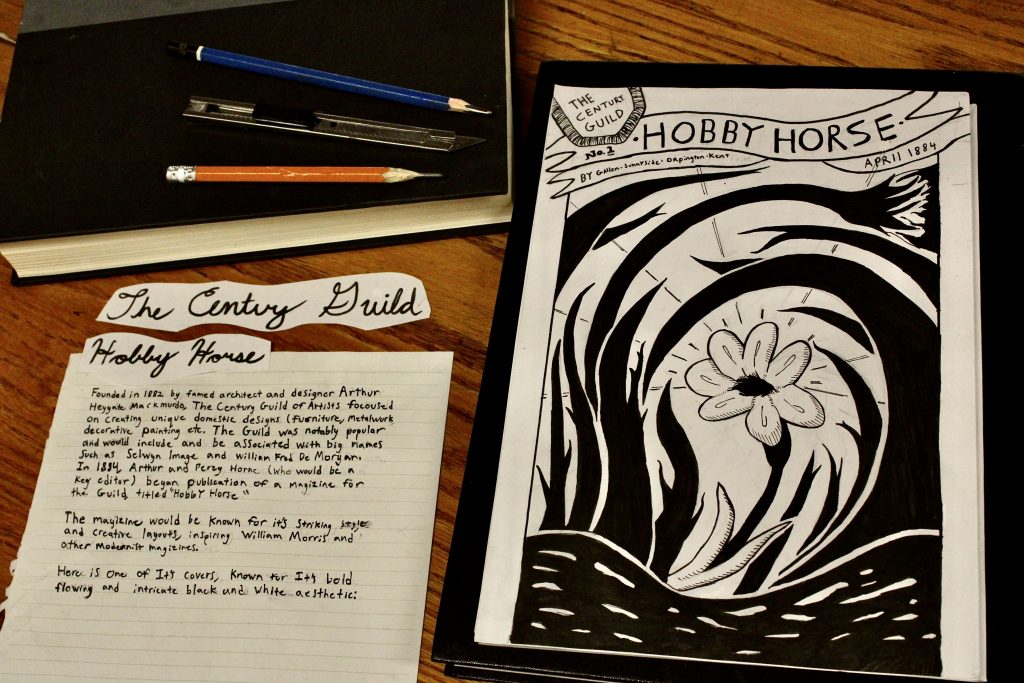 THE
CENTURY
GUILD
No. 1
·HOBBY HORSE·
APRIL 1884
BY G·Allen·Sunnyside·Orpington·Kent
The Century Guild
Hobby Horse
Founded in 1882 by famed architect and designer Arthur
Heygate Mackmurdo, The Century Guild of Artists focoused
on creating unique domestic designs (furniture, metalwork,
decorative painting etc. The Guild was notably popular
and would include and be associated with big names
such as Selwyn Image and William Fred De Morgan.
In 1884, Arthur and Percy Horne (who would be a
key editor) began publication of a magizine for
the Guild, titled "Hobby Horse"
The magizine would be known for it's striking style
and creative layouts, inspiring William Morris and
other modernist magizines.
Here is one of It's covers, known for It's bold
flowing and intricate black and white aesthetic: